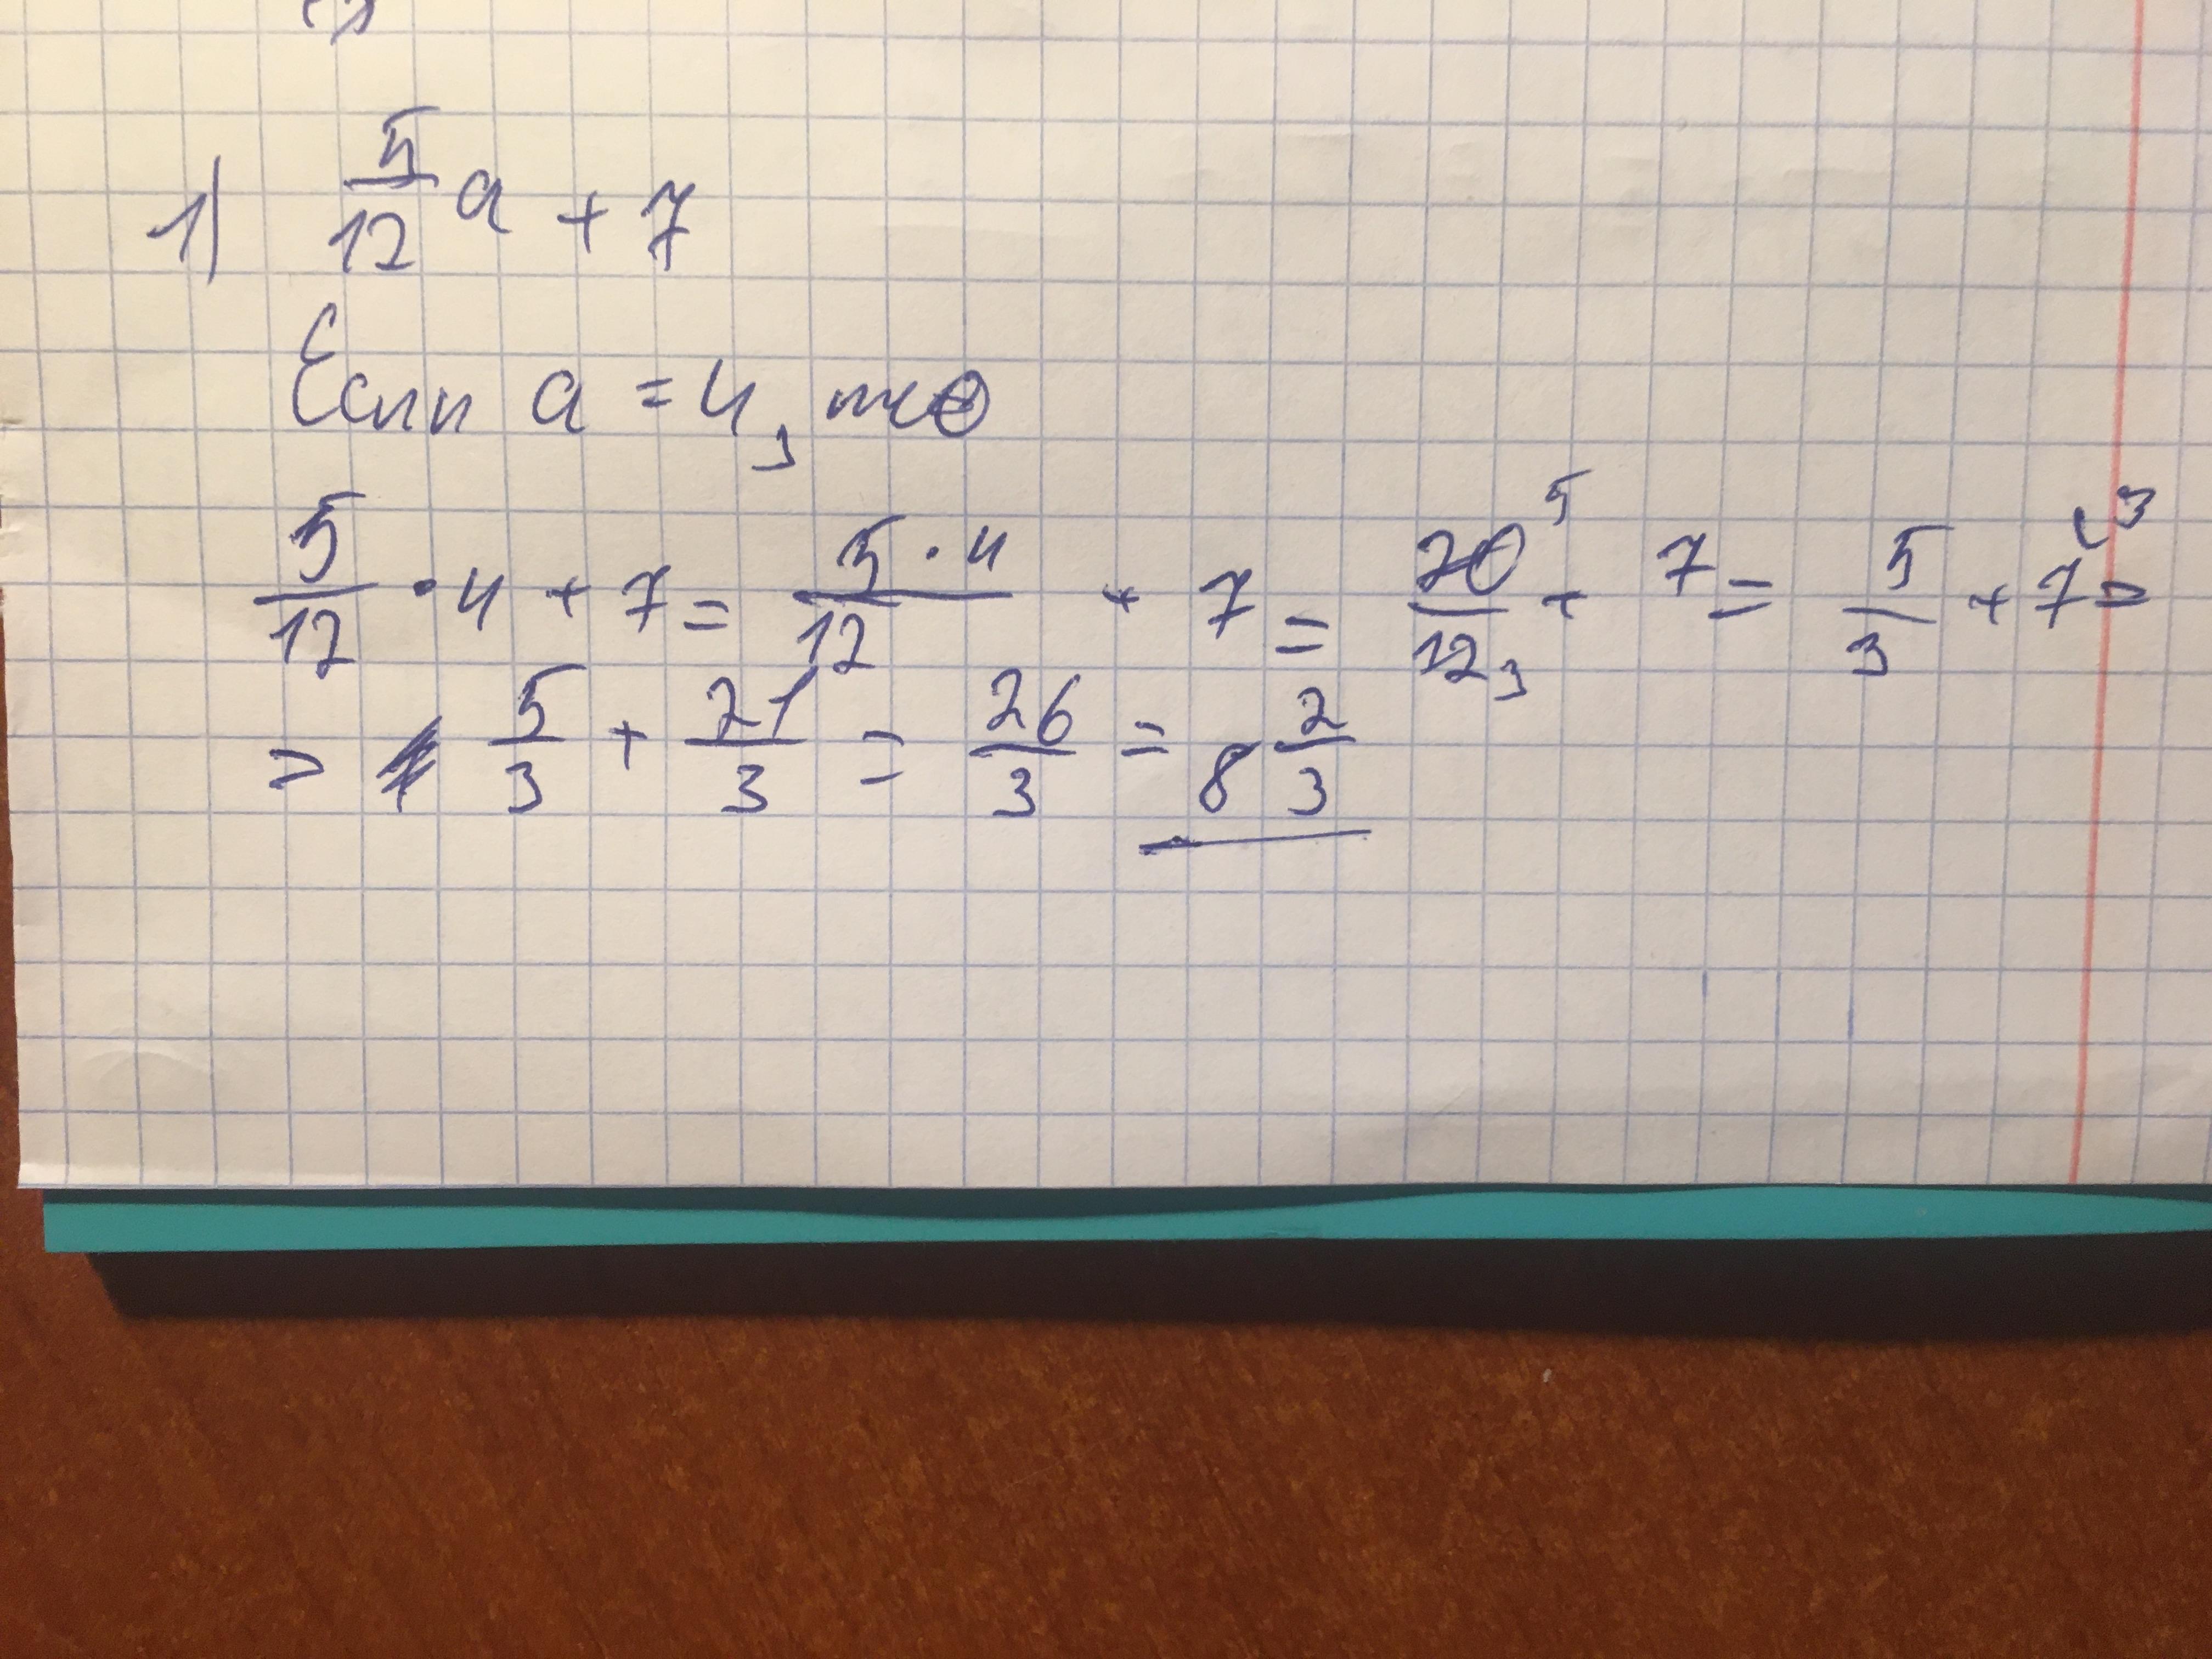 1) 5/12 a + 7
Если a = 4, то
5/12 · 4 + 7 = 5 · 4/12 + 7 = 20 5/12 3 + 7 = 5/3 + 7 3 =
= 5/3 + 21/3 = 26/3 = 8 2/3